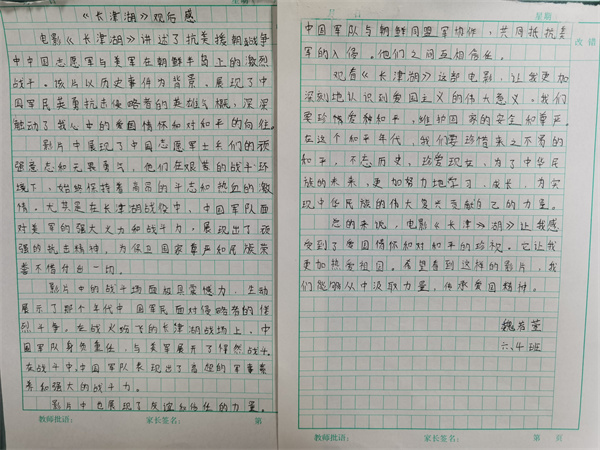 《长津湖》观后感
电影《长津湖》讲述了抗美援朝战争
中中国志愿军与美军在朝鲜半岛上的激烈
战斗。该片以历史事件为背景，展现了中
国军民英勇抗击侵略者的英雄气概，深深
触动了我心中的爱国情怀和对和平的向往。
影片中展现了中国志愿军士长们的顽
强意志和无畏勇气，他们在艰苦的战斗环
境下，始终保持着高昂的斗志和热血的激
情。尤其是在长津湖战役中，中国军队面
对美军的强大火力和战斗力，展现出了顽
强的抗击精神，为保卫国家尊严和民族荣
誉不惜付出一切。
影片中的战斗场面极具震撼力，生动
展示了那个年代中国军民面对侵略者的惨
烈斗争。在战火纷飞的长津湖战场上，中
国军队身负重任，与美军展开了殊然战斗。
在战斗中，中国军队表现出了卓越的军事素
养和强大的战斗力。
影片中也展现了友谊和信任的力量。
教师批语： 家长签名： 第
星期
改错
中国军队与朝鲜同盟军协作，共同抵抗美
军的入侵。他们之间互相信任。
观看《长津湖》这部电影，让我更加
深刻地认识到爱国主义的伟大意义。我们
要珍惜爱护和平，维护国家的安全和尊严。
在这个和平年代，我们要珍惜来之不易的
和平，不忘历史，珍爱现在，为了中华民
族的未来，更加努力地学习，成长，为实
现中华民族的伟大复兴贡献自己的力量。
总的来说，电影《长津湖》让我感
受到了爱国情怀和对和平的珍视。它让我
更加热爱祖国。希望看到这样的影片，我
们能够从中汲取力量，传承爱国精神。
魏若萱
六.4班
教师批语： 家长签名： 第 页